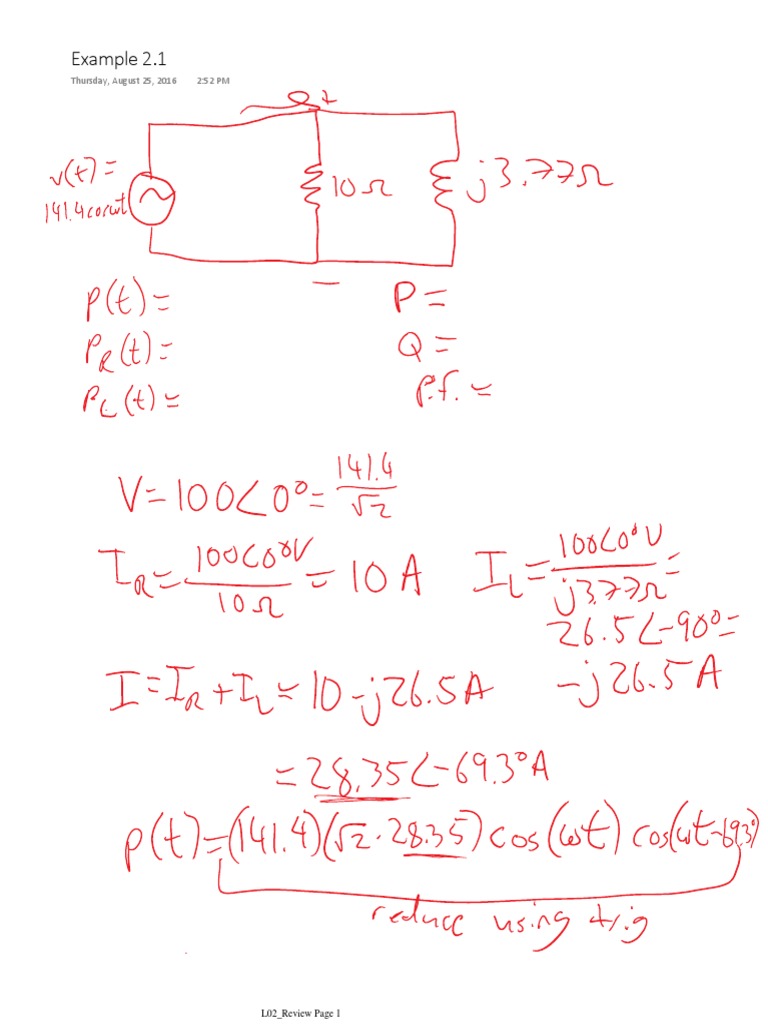 Example 2.1
Thursday, August 25, 2016 2:52 PM
+
v(t)=
141.4cosωt
10Ω
j3.77Ω
−
p(t)=
P=
P_R(t)=
Q=
P_L(t)=
p.f.=
V=100∠0°=141.4/√2
I_R=100∠0°V/10Ω=10A
I_L=100∠0°V/j3.77Ω=
26.5∠-90°=
-j26.5A
I=I_R+I_L=10-j26.5A
=28.35∠-69.3°A
p(t)=(141.4)(√2·28.35)cos(ωt)cos(ωt-69.3°)
reduce using trig
L02_Review Page 1